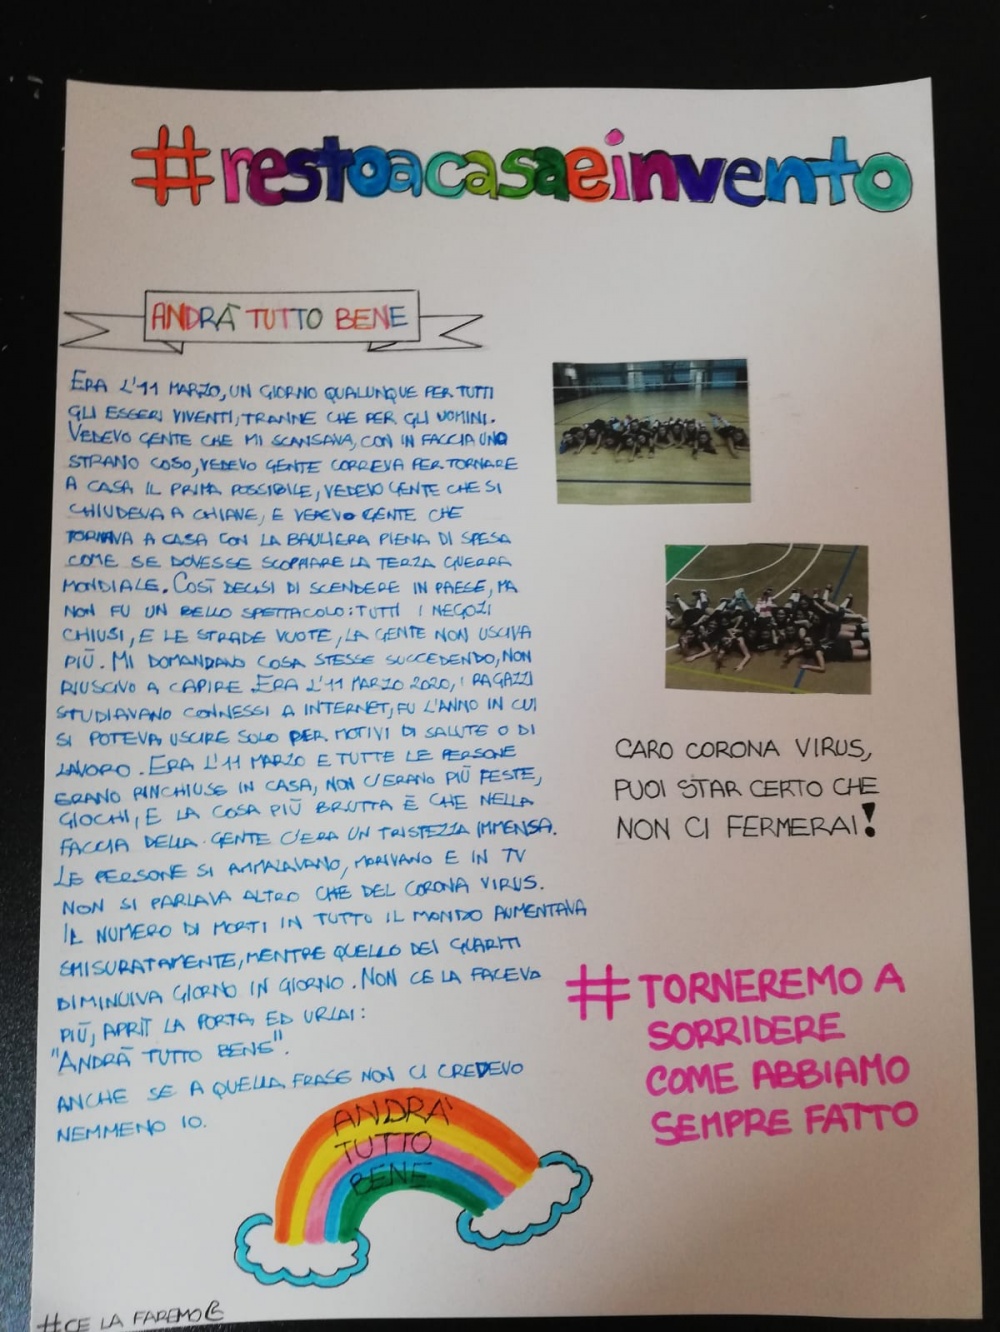 #restoacasaeinvento
ANDRÀ TUTTO BENE
ERA L'11 MARZO, UN GIORNO QUALUNQUE PER TUTTI
GLI ESSERI VIVENTI, TRANNE CHE PER GLI UOMINI.
VEDEVO GENTE CHE MI SCANSAVA, CON IN FACCIA UNO
STRANO COSO, VEDEVO GENTE CORREVA PER TORNARE
A CASA IL PRIMA POSSIBILE, VEDEVO GENTE CHE SI
CHIUDEVA A CHIAVE, E VEDEVO GENTE CHE
TORNAVA A CASA CON LA BAULIERA PIENA DI SPESA
COME SE DOVESSE SCOPPIARE LA TERZA GUERRA
MONDIALE. COSÌ DECISI DI SCENDERE IN PAESE, MA
NON FU UN BELLO SPETTACOLO: TUTTI I NEGOZI
CHIUSI, E LE STRADE VUOTE, LA GENTE NON USCIVA
PIÙ. MI DOMANDAVO COSA STESSE SUCCEDENDO, NON
RIUSCIVO A CAPIRE. ERA L'11 MARZO 2020, I RAGAZZI
STUDIAVANO CONNESSI A INTERNET, FU L'ANNO IN CUI
SI POTEVA USCIRE SOLO PER MOTIVI DI SALUTE O DI
LAVORO. ERA L'11 MARZO E TUTTE LE PERSONE
ERANO RINCHIUSE IN CASA, NON C'ERANO PIÙ FESTE,
GIOCHI, E LA COSA PIÙ BRUTTA È CHE NELLA
FACCIA DELLA GENTE C'ERA UN TRISTEZZA IMMENSA.
LE PERSONE SI AMMALAVANO, MORIVANO E IN TV
NON SI PARLAVA ALTRO CHE DEL CORONA VIRUS.
IL NUMERO DI MORTI IN TUTTO IL MONDO AUMENTAVA
SMISURATAMENTE, MENTRE QUELLO DEI GUARITI
DIMINUIVA GIORNO IN GIORNO. NON CE LA FACEVO
PIÙ, APRIT LA PORTA ED URLAI:
"ANDRÀ TUTTO BENE".
ANCHE SE A QUELLA FRASE NON CI CREDEVO
NEMMENO IO.
ANDRA'
TUTTO
BENE
#CE LA FAREMO
CARO CORONA VIRUS,
PUOI STAR CERTO CHE
NON CI FERMERAI!
#TORNEREMO A
SORRIDERE
COME ABBIAMO
SEMPRE FATTO